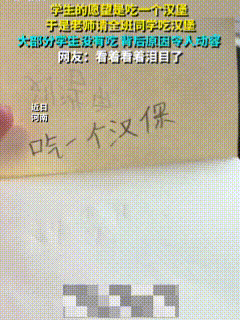 学生的愿望是吃一个汉堡
于是老师请全班同学吃汉堡
大部分学生没有吃 背后原因令人动容
网友：看着看着泪目了
近日
河南
吃一个汉保